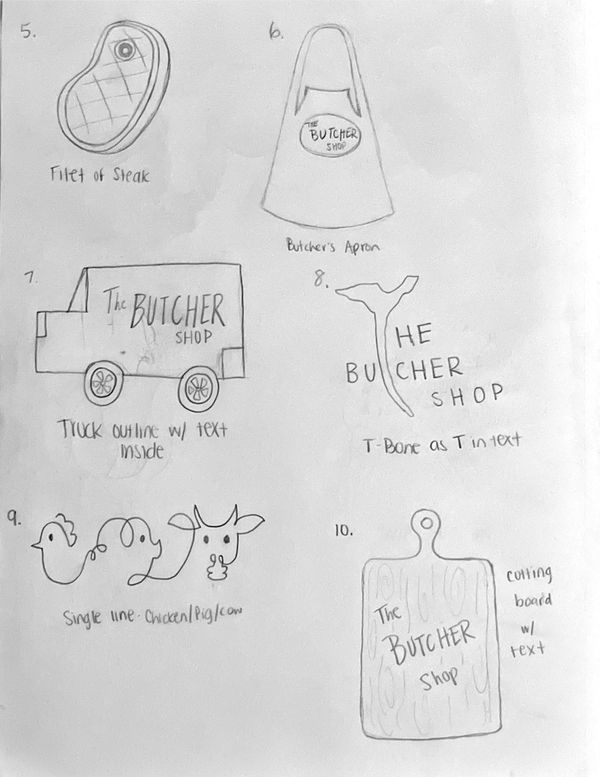 5.
Filet of Steak
6.
THE
BUTCHER
SHOP
Butcher's Apron
7.
The BUTCHER
SHOP
Truck outline w/ text
inside
8.
HE
BU CHER
SHOP
T-Bone as T in text
9.
Single line - Chicken/Pig/Cow
10.
The
BUTCHER
Shop
cutting
board
w/
text